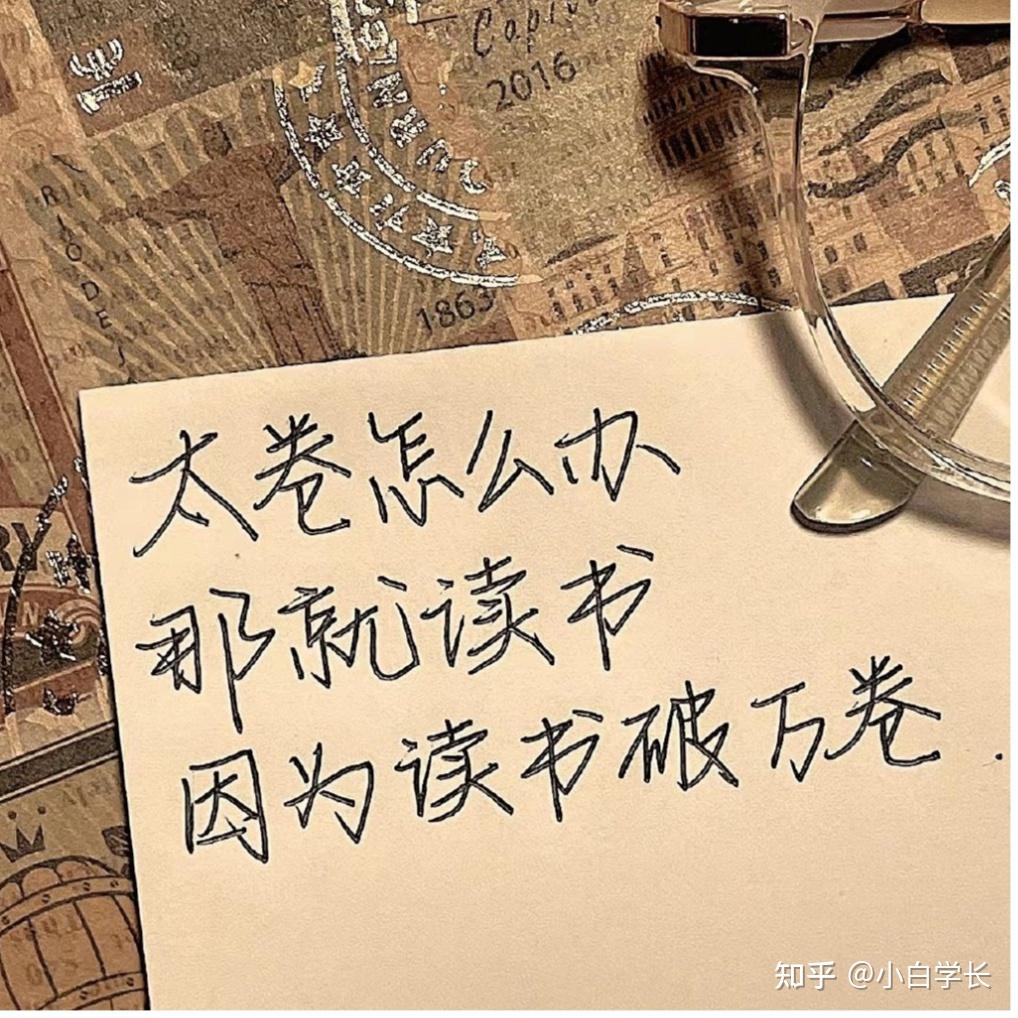 Copi
2016
1863
RIO DE J
RY
太卷怎么办
那就读书
因为读书破万卷.
知乎 @小白学长